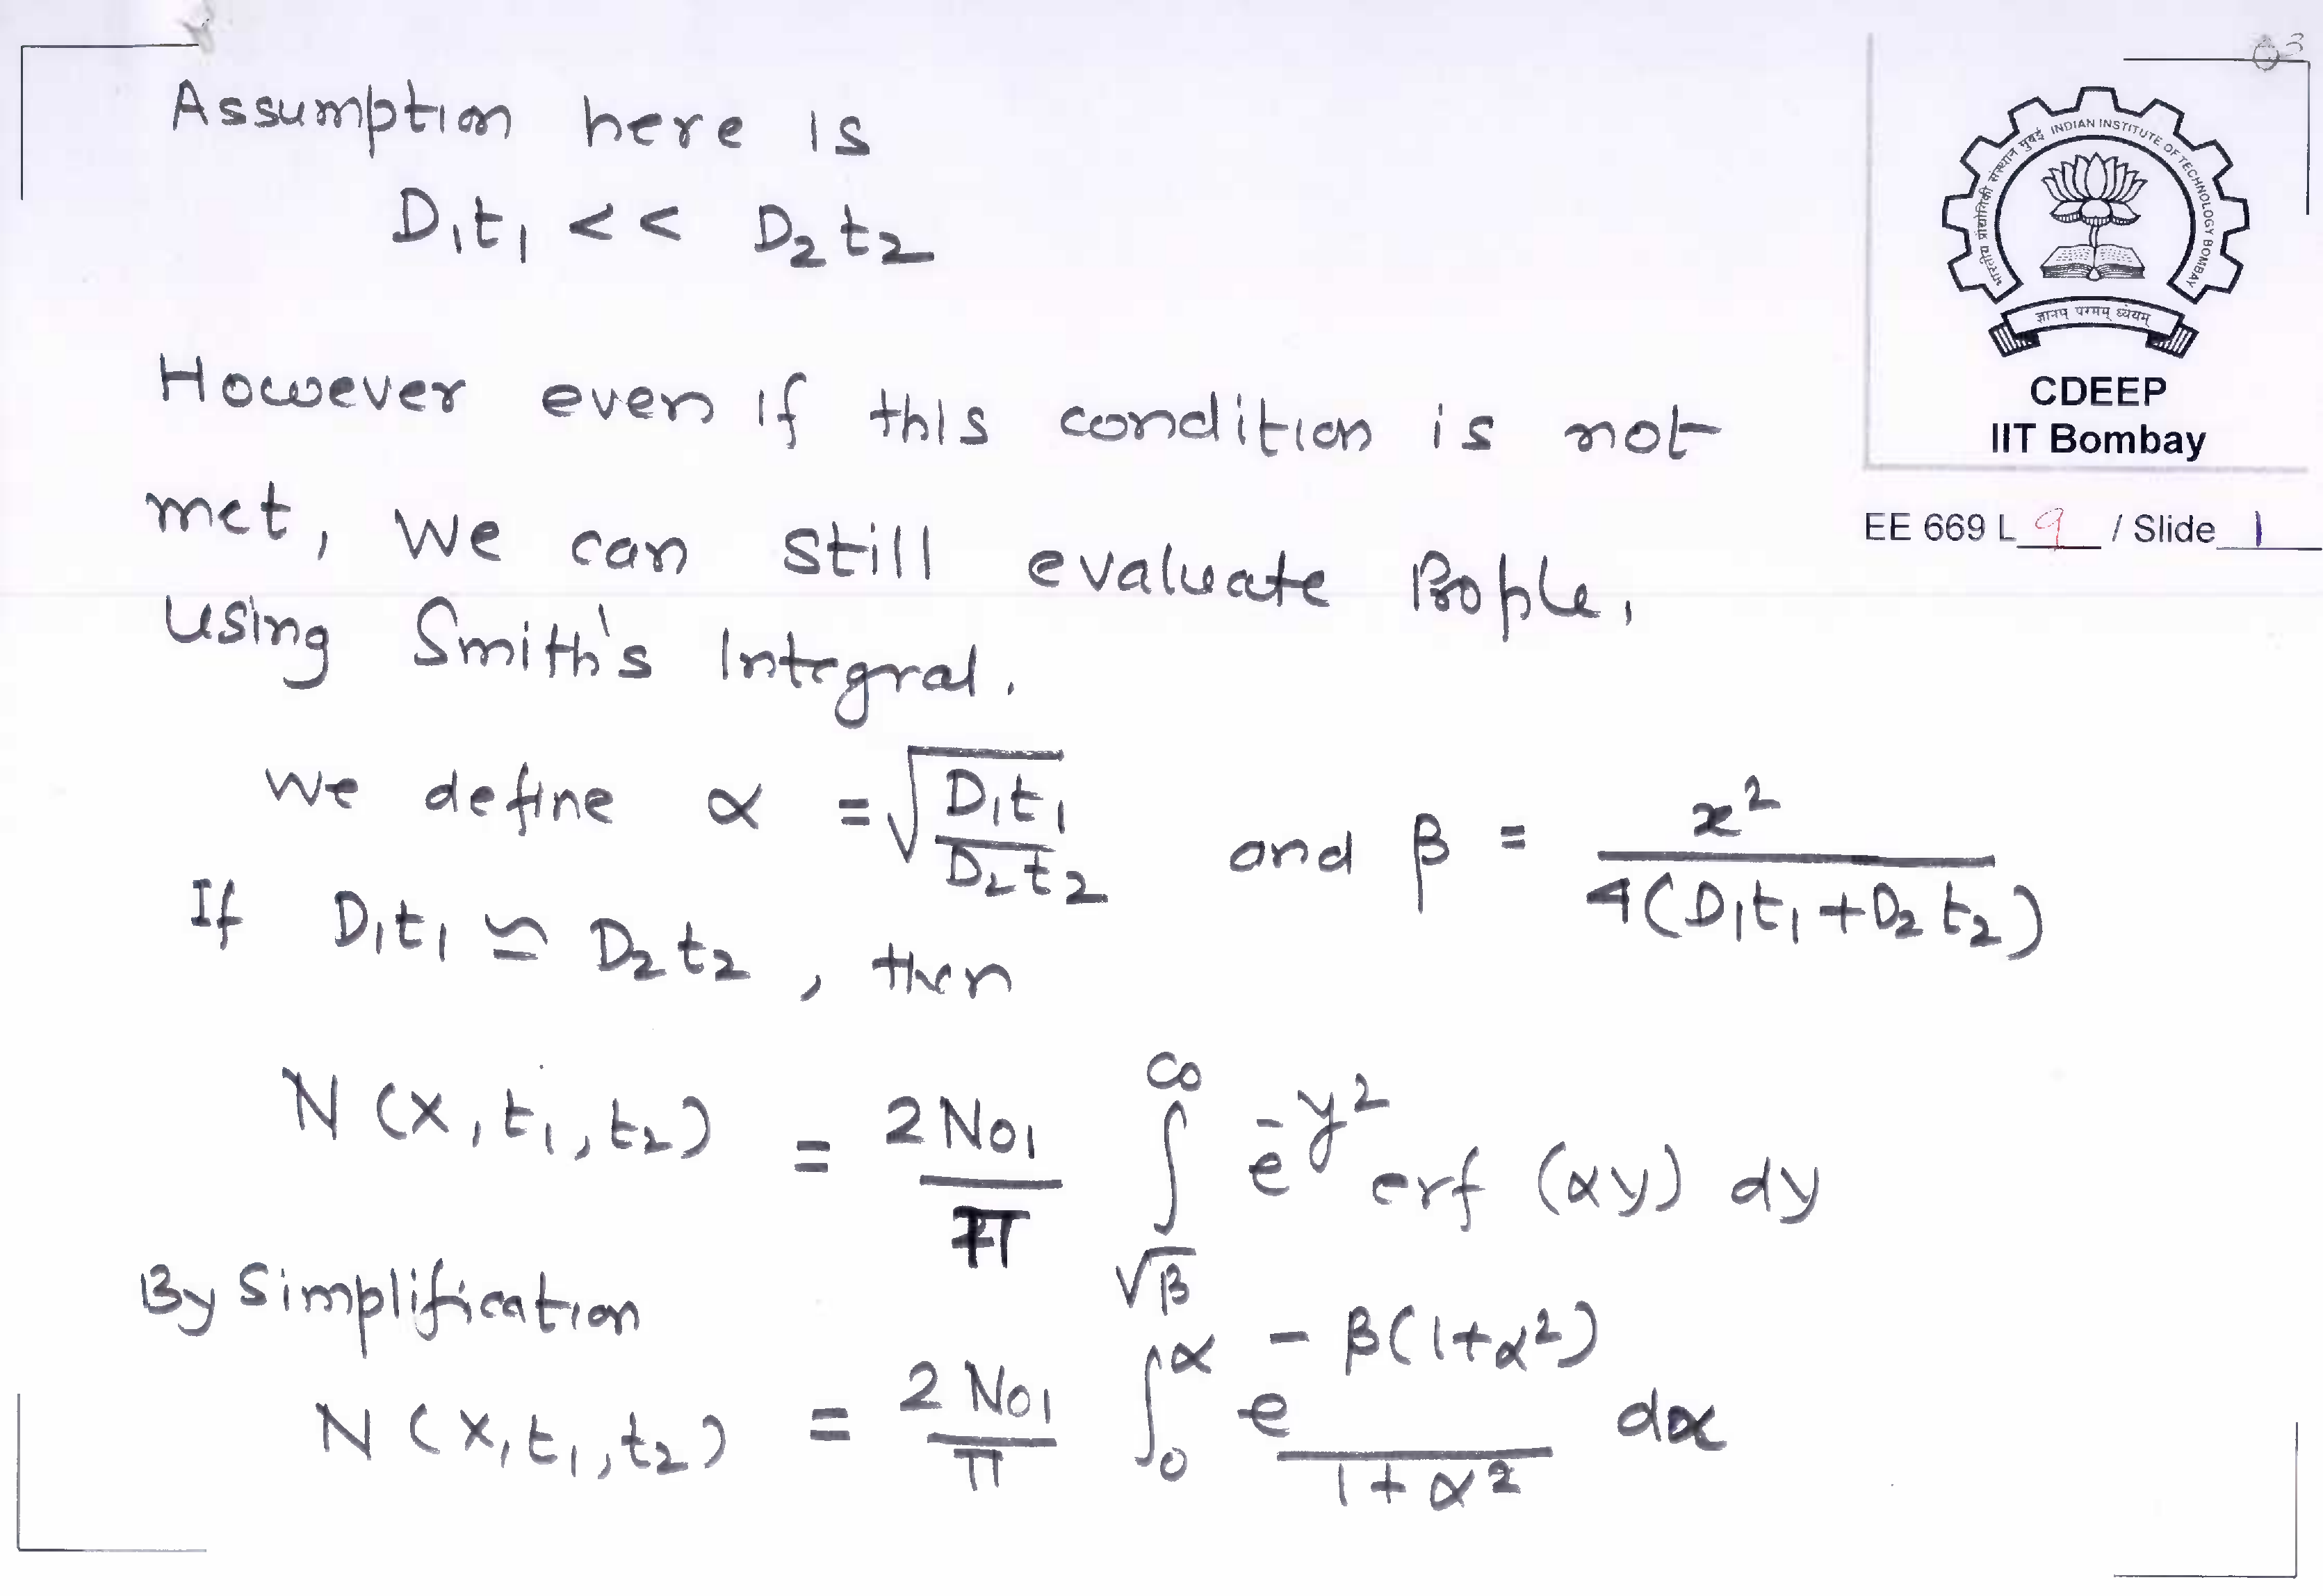 Assumption here is
D₁t₁ << D₂t₂
However even if this condition is not
met, we can still evaluate Profile,
using Smith's Integral.
we define α = √(D₁t₁ / D₂t₂) and β = x² / 4(D₁t₁ + D₂t₂)
If D₁t₁ ≃ D₂t₂, then
N(x, t₁, t₂) = 2 N₀₁ / π ∫_√β^∞ e^-y² erf (αy) dy
By Simplification
N(x, t₁, t₂) = 2 N₀₁ / π ∫₀^α e^-β(1+α²) / 1+α² dα
भारतीय प्रौद्योगिकी संस्थान मुंबई INDIAN INSTITUTE OF TECHNOLOGY BOMBAY
ज्ञानम् परमम् ध्येयम्
CDEEP
IIT Bombay
EE 669 L 9 / Slide 1